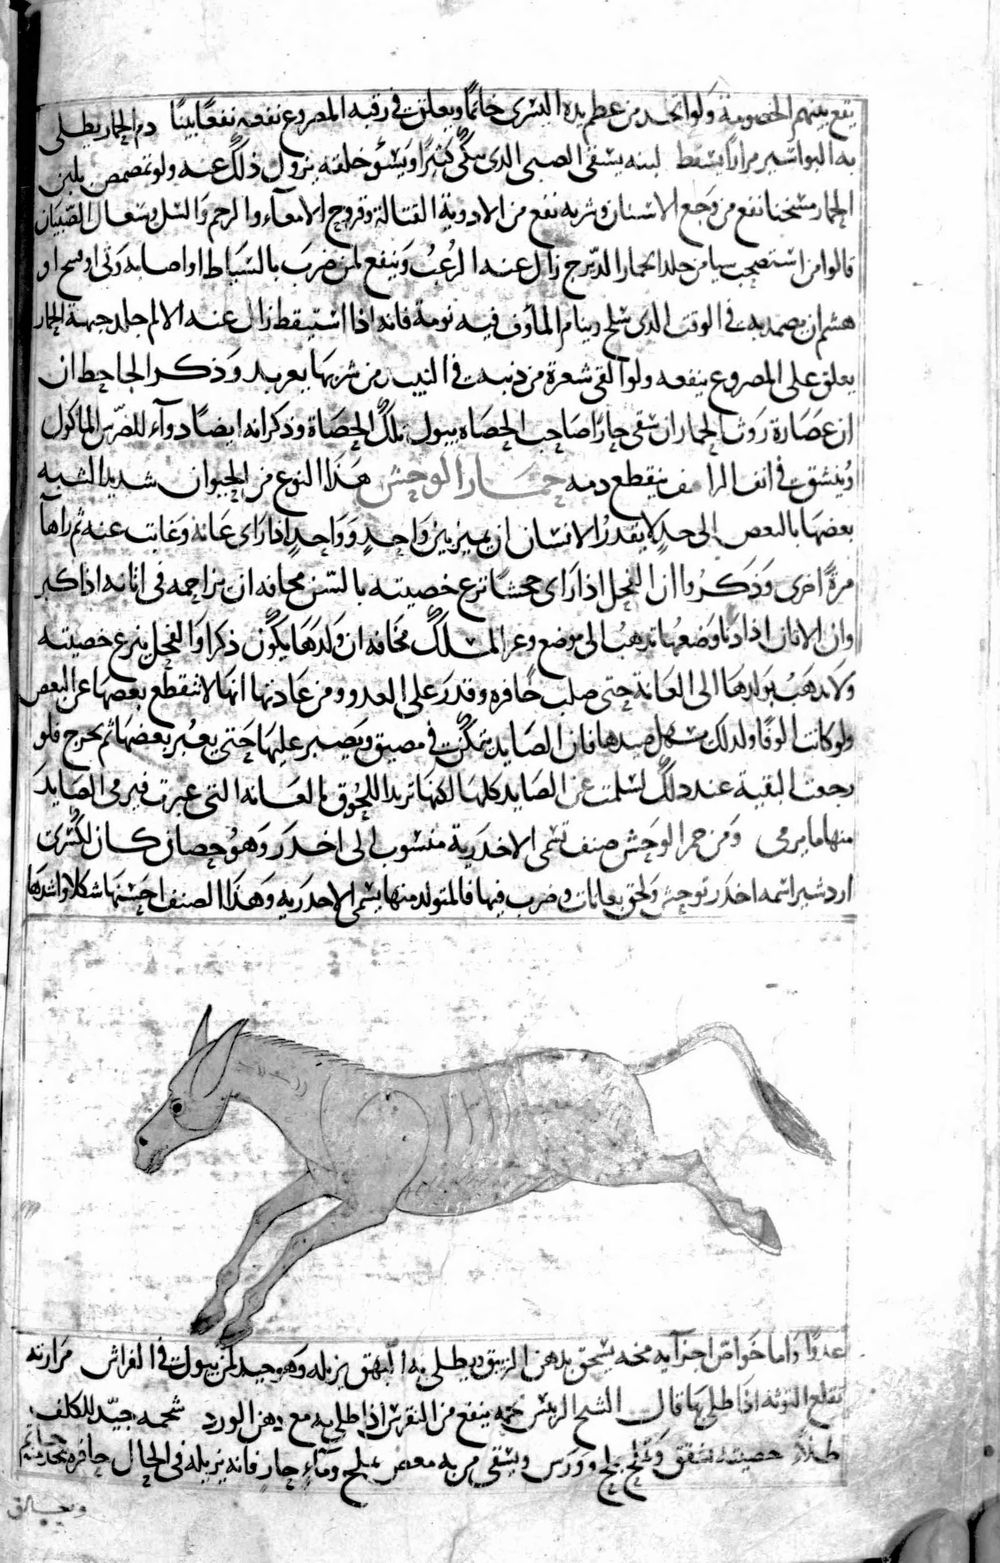 يقع بينهم الخصومة ولو اتخذ من عظم يده اليسرى خاتما ويعلق في رقبه المصروع نفعه نفعا بينا دم الحمار يطلى
به البواسير مرارا يسقط لبنه يسقى الصبى الذى يبكى كثيرا ويسئو خلقه يزول ذلك عنه ولو تمضمض بلبن
الحمار مسخنا نفع من وجع الاسنان وشربه نفع من الادوية القتالة وقروح الامعاء والزحير والسل وسعال الصبيان
قالوا من استصحب سيا من جلد الحمار الديزج زال عنه الرعب وينفع لمن ضرب بالسياط او اصابه وثى او فسخ او
هشم ان يضمد به في الوقت الذى سلخ وينام المأوف فيه نومة فانه اذا استيقظ زال عنه الالم جلد جبهة الحمار
يعلق على المصروع ينفعه ولو القى شعرة من ذنبه في النبيذ من شربها يعربد وذكر الجاحظ ان
ان عصارة روث الحمار ان سقى حارا صاحب الحصاه يبول تلك الحصاة وذكر انه ايضا دوآء للضرس المأكول
وينشق في انف الراعف ينقطع دمه حمار الوحش هذا النوع من الحيوان شديد الشبه
بعضها بالبعض الى حد لا يقدر الانسان ان يميز بين واحد وواحد اذا راى عانة وغابت عنه ثم راها
مرة اخرى وذكروا ان الفحل اذا راى جحشا نزع خصيته بالسن مخافه ان يزاحمه في اتانه اذا كبر
وان الاتان اذا دنا وضعها تذهب الى موضع وعر المسلك مخافه ان ولدها يكون ذكرا والفحل ينزع خصيته
ولا تذهب بولدها الى العانة حتى صلب حافره وقدر على العدو ومن عادتها انها لا تنقطع بعضها عن البعض
ولو كانت الوفا ولذلك سهل صيدها فان الصايد يتمكن في مضيق ويصبر عليها حتى يعبر بعضها ثم يخرج فلو
رجعت البقية عند ذلك لسلمت عن الصايد كلها لكنها تريد اللحوق بالعانه التي عبرت فيرمى الصايد
منها ما يرمى ومن حمر الوحش صنف تسمى الاخدرية منسوب الى اخدر وهو حصان كان لكسرى
اردشير اسمه اخدر توحش ولحق بعانات وضرب فيها فالمتولد منها يسمى الاخدريه وهذا الصنف احسنها شكلا واشدها
عدوا واما خواص اجزآيه مخه يسحق بدهن الزيبق ويطلى به البهق يزيله وهو جيد لمن يبول في الفراش مرارته
تقلع التوثه اذا طلى بها قال الشيخ الريس لحمه ينفع من النقرس اذا طلى به مع دهن الورد شحمه جيد للكلف
طلاء خصيته تشقق وتملح بملح وورس ويسقى من به مغص بملح ومآء حار فانه يزيله في الحال حافره يتخذ منه خاتم
ويعالق